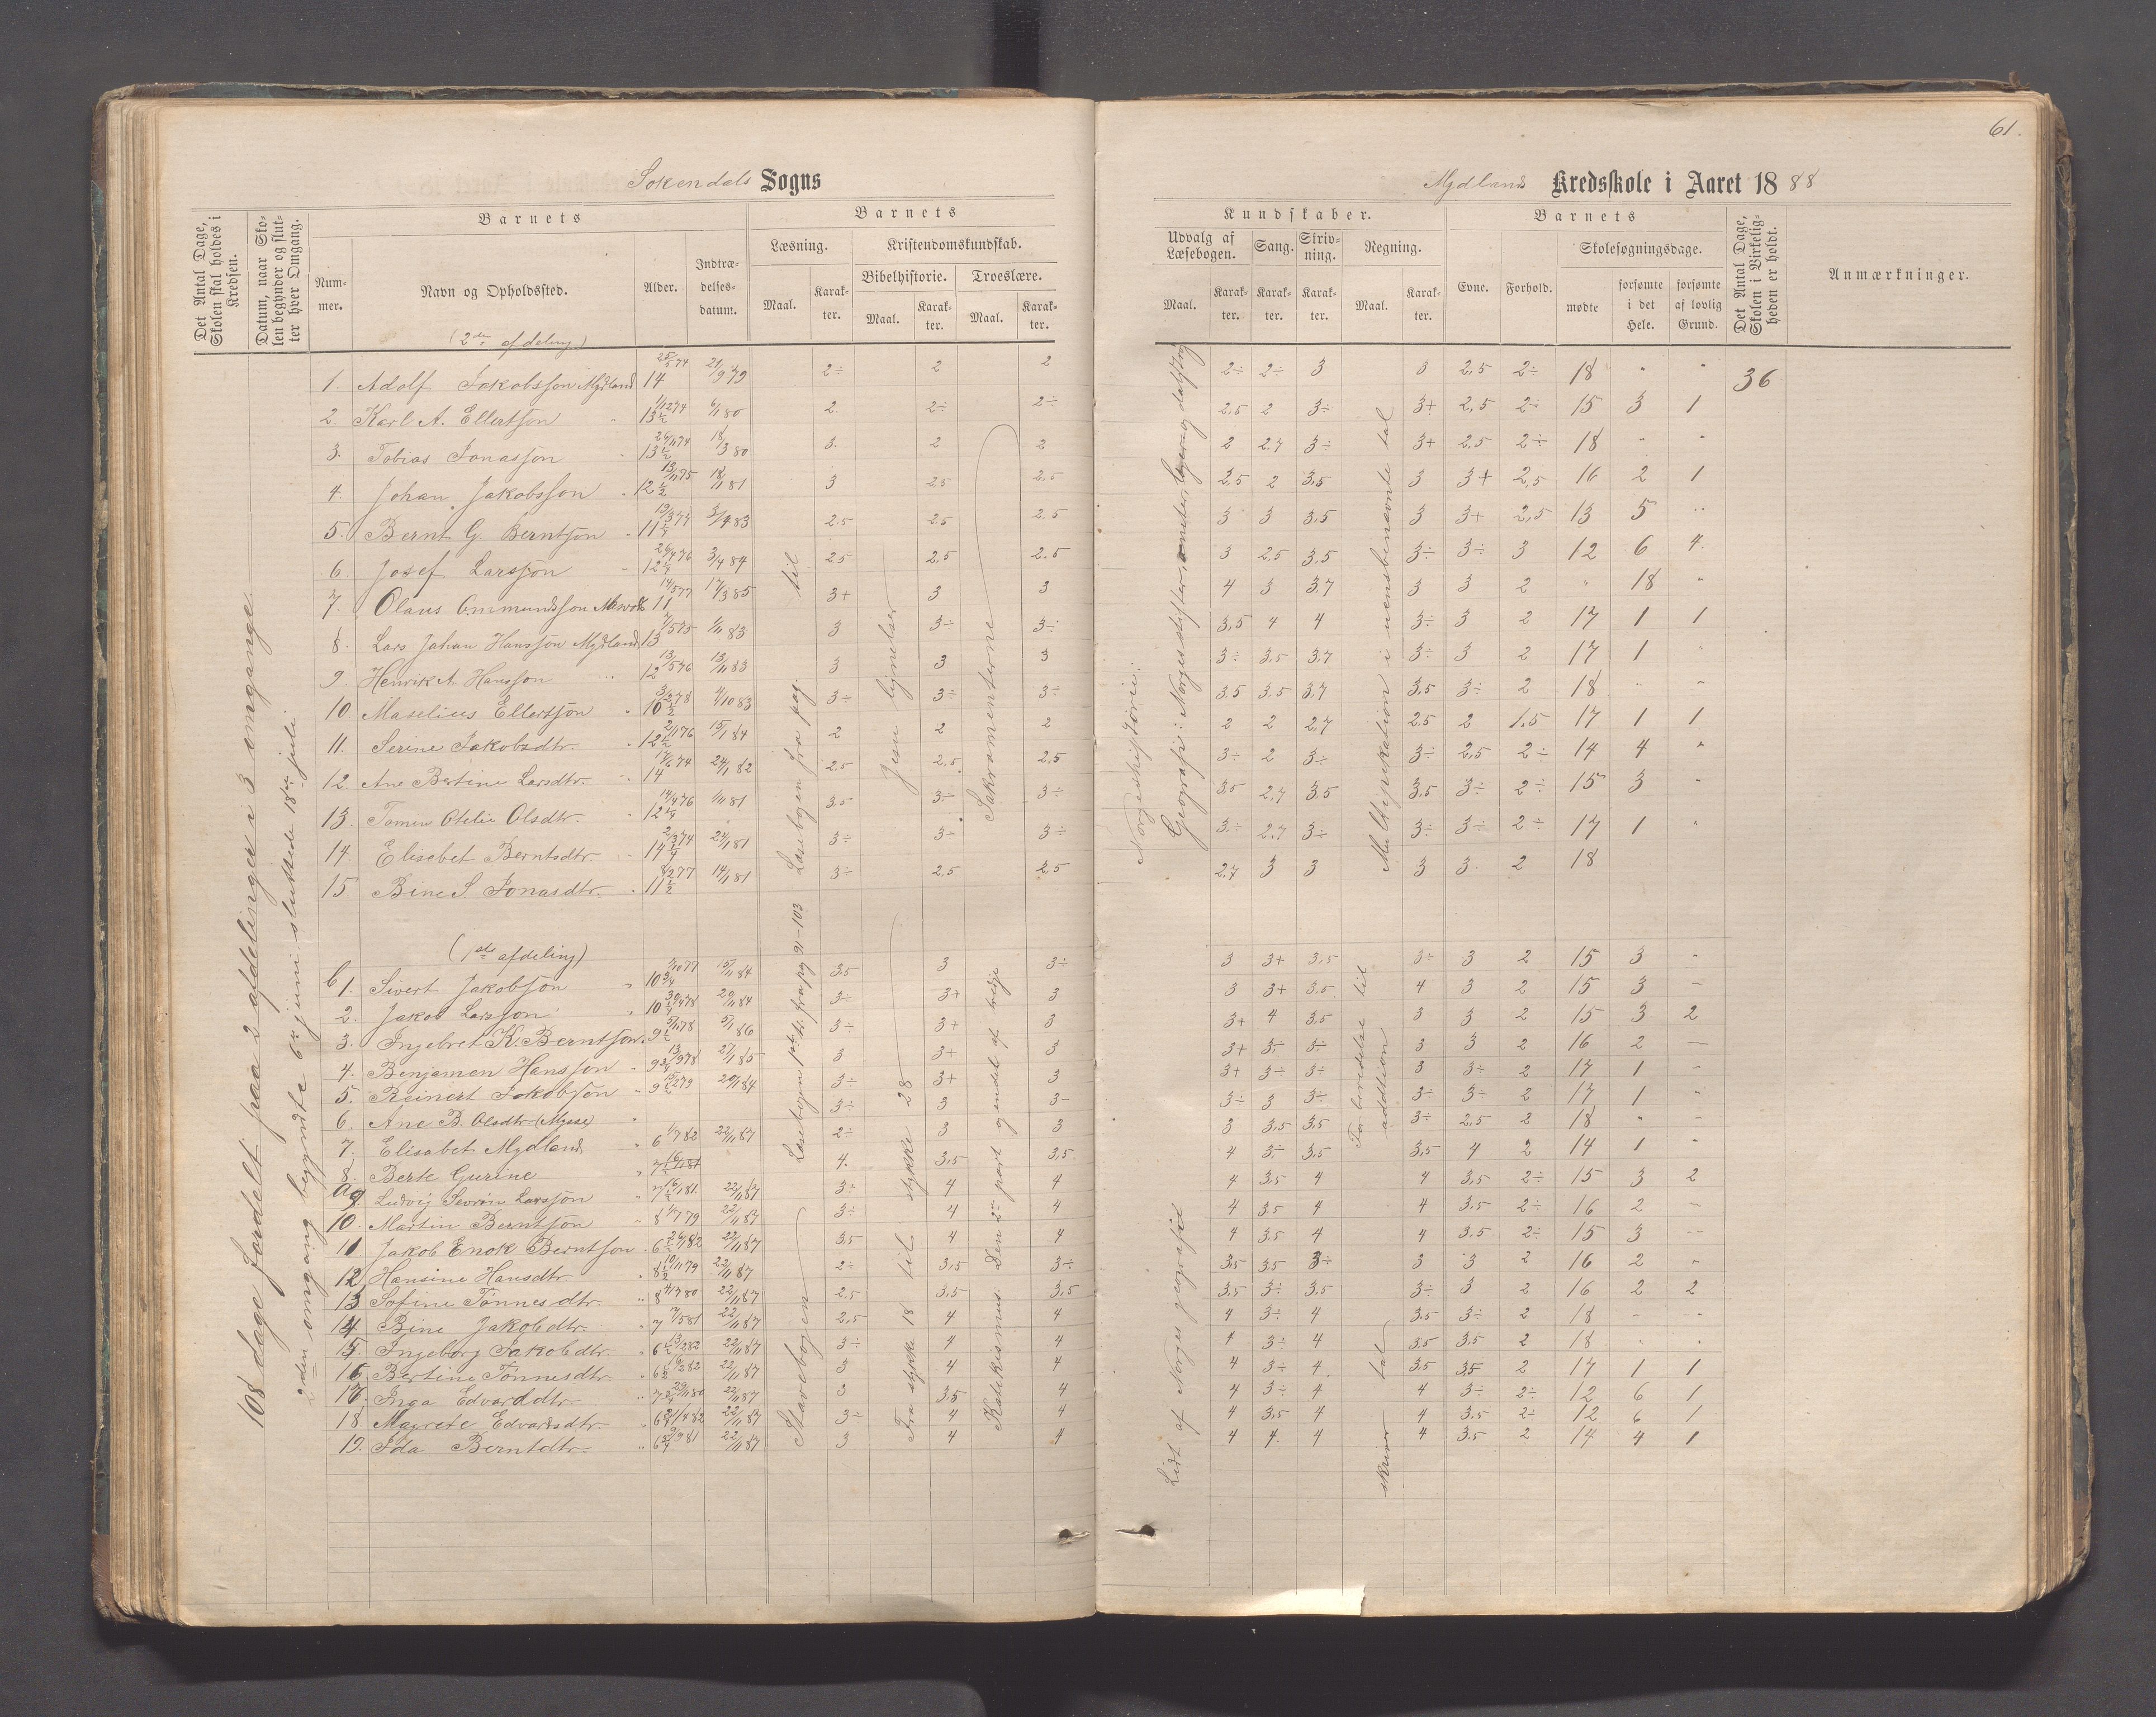 61.
Sokendals Sogns
Mydlands Kredsskole i Aaret 1888
Det Antal Dage, Skolen skal holdes i Kredsen.
Datum, naar Skolen begynder og slutter hver Omgang.
Barnets
Nummer.
Navn og Opholdssted.
Alder.
Indtrædelsesdatum.
Barnets
Læsning.
Maal.
Karakter.
Kristendomskundskab.
Bibelhistorie.
Maal.
Karakter.
Troeslære.
Maal.
Karakter.
Kundskaber.
Udvalg af Læsebogen.
Maal.
Karakter.
Sang.
Karakter.
Skrivning.
Karakter.
Regning.
Maal.
Karakter.
Barnets
Evne.
Forhold.
Skolesøgningsdage.
mødte
forsømte i det Hele.
forsømte af lovlig Grund.
Det Antal Dage, Skolen i Virkeligheden er holdt.
Anmærkninger.
108 dage fordelt paa 2 afdelinger i 3 omgange
2den omgang begyndte 6te juni sluttede 18de juli
(2den afdeling)
1. Adolf Jakobsson Mydland 14 21/9 79 2÷ 2 2 2÷ 2÷ 3 3 2,5 2÷ 18 " " 36
2. Karl A. Ellertson " 13½ 6/1 80 2. 2÷ 2÷ 2.5 2 3÷ 3+ 2,5 2÷ 15 3 1
3. Tobias Jonasson " 13½ 18/3 80 3. 2 2 2 2.7 3÷ 3+ 2.5 2÷ 18 " "
4. Johan Jakobsson " 12½ 18/11 81 3 2.5 2.5 2,5 2 3,5 3 3+ 2,5 16 2 1
5. Bernt G. Berntson " 11½ 3/4 83 2.5 2.5 2.5 3 3 3,5 3 3+ 2,5 13 5 "
6. Josef Larsson " 12¼ 3/4 84 2.5 2.5 2.5 3 2.5 3,5 3÷ 3÷ 3 12 6 4.
7. Olaus Ommundsson 11 17/3 85 3+ 3 3 4 3 3.7 3 3 2 " 18 "
8. Lars Johan Hansson Mydland 13 1/11 83 3 3÷ 3÷ 3,5 4 4 3÷ 3 2 17 1 1
9. Henrik A. Hansson " 12 13/11 83 3 3 3 3÷ 3.5 3.7 3÷ 3 2 17 1 "
10. Maselius Ellertson " 10½ 4/10 83 3÷ 3÷ 3÷ 3.5 3.5 3,7 3,5 3÷ 2 18 " "
11. Serine Jakobsdtr. " 12½ 15/1 84 2 2 2 2 2 2,7 2.5 2 1.5 17 1 1
12. Ane Bertine Larsdtr. " 14 24/1 82 2.5 2.5 2.5 3÷ 2 3÷ 3÷ 2,5 2÷ 14 4 "
13. Tomine Otelie Olsdtr. " 12¼ 1/11 81 3.5 3÷ 3÷ 3.5 2.7 3.5 3,5 3÷ 2÷ 15 3 "
14. Elisebet Berntsdtr. " 14¼ 24/1 81 3÷ 3÷ 3÷ 3÷ 2.7 3÷ 3÷ 3÷ 2÷ 17 1 "
15 Bine S. Jonasdtr. " 11½ 14/1 81 3÷ 2,5 2,5 2.7 3 3 3 3. 2 18
Læsebogen fra pag. til
Jesu lignelser
Sakramenterne
Norgeshistorie:
Geografi: Norges stifter, amter
Multiplikation i uensbenævnte tal
(1ste afdeling)
b 1. Sivert Jakobson " 10¾ 15/11 84 3.5 3 3÷ 3 3+ 3,5 3÷ 3 2 15 3 "
2. Jakob Larsson " 10¼ 20/11 84 3÷ 3+ 3 3 3+ 3.5 4 3 2 15 3 -
3. Ingebret K. Berntson " 9½ 5/1 86 3÷ 3+ 3 3+ 4 3,5 3 3 2 15 3 2
4. Benjamen Hansson " 9¾ 27/1 85 3 3+ 3 3+ 3÷ 3÷ 3 3 2 16 2 -
5. Reinert Jakobson " 9½ 20/1 84 3÷ 3+ 3 3+ 3÷ 3÷ 3 3÷ 2 17 1 "
6. Ane B. Olsdtr. 3÷ 3 3- 3÷ 3 3÷ 3÷ 3÷ 2 17 1 "
7. Elisabet Mydland 6 22/11 87 2÷ 3 3 3 3,5 3,5 3÷ 2,5 2 18 " -
8. Berte Gurine 4. 3,5 3,5 4 3÷ 3,5 3,5 4 2 14 1 "
a 9. Ludvig Severin Larsson " 7½ 22/11 87 3÷ 4 4 4 3.5 4 4 3,5 2÷ 15 3 2
10. Martin Berntson " 8 22/11 87 3÷ 4 4 4 3.5 4 4 3.5 2÷ 16 2 -
11. Jakob Enok Berntson " 6½ 22/11 87 3.5 4 4 4 3.5 4 4 3.5 2÷ 15 3 --
12. Hansine Hansdtr. " 8½ 22/11 87 2÷ 3,5 3÷ 3,5 3,5 3÷ 3 3 2 16 2 "
13. Sofine Tønnesdtr. " 8 22/11 87 2.5 3,5 3,5 3,5 3÷ 3,5 3÷ 3 2 16 2 2
14. Bine Jakobdtr. " 7 22/11 87 2,5 4 4 4 3÷ 4 3.5 3÷ 2 18 - -
15. Ingeborg Jakobdtr. " 6½ 22/11 87 3÷ 4 4 4 3÷ 4 3.5 3,5 2 18 " "
16. Bertine Tønnesdtr. " 6½ 22/11 87 3 4 4 4 3÷ 4 3,5 3,5 2 17 1 1
17. Inga Edvarddtr. " 7¾ 22/11 87 3 3.5 4 4 3÷ 4 4 3÷ 2÷ 12 6 1
18. Magrete Edvardsdtr. " 6¼ 22/11 87 3÷ 4 4 4 3,5 4 4 3.5 2÷ 12 6 1
19. Ida Berntdtr. " 6¾ 22/11 87 3 4 4 4 4. 4 4 3.5 2 14 4 1
Læsebogen fra pag 91-103
Stavebogen
Fra stykke 18 til stykke 28
Katekismus. Den 2den part og endel af tredje
Lidt af Norges geografi
Forberedelse til addition
skriver tal